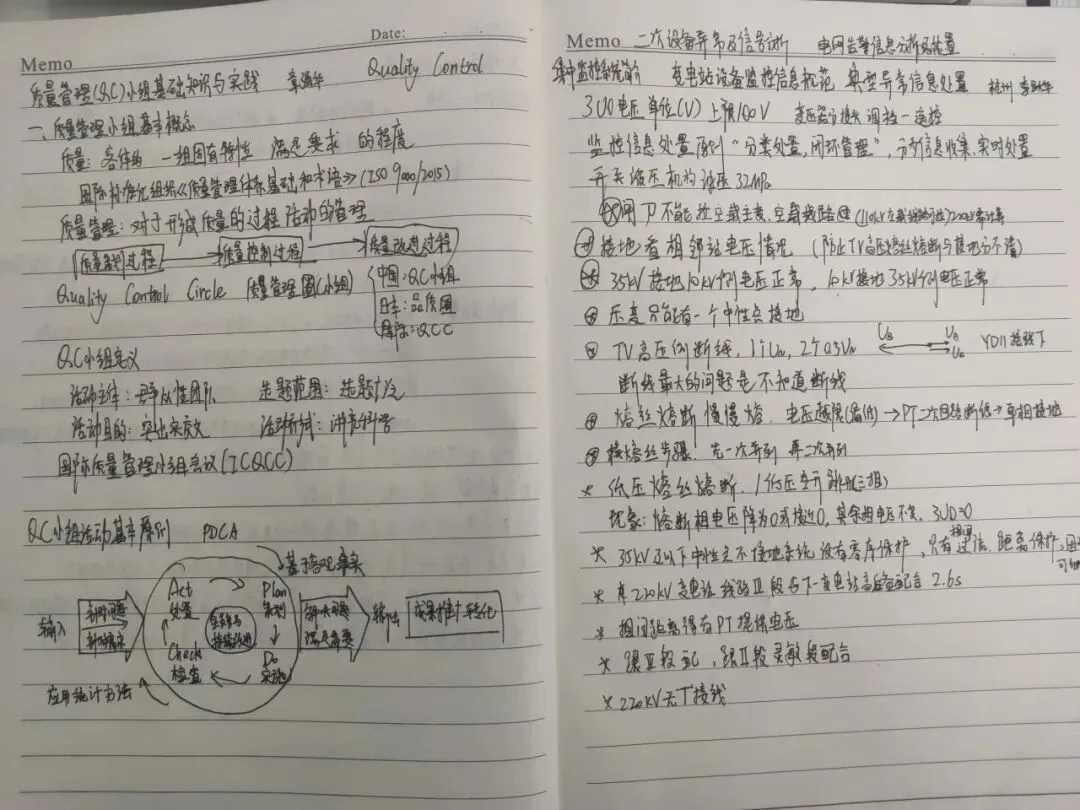 Memo
Date:
质量管理(QC)小组基础知识与实践 Quality Control
一、质量管理小组基本概念
质量: 客体的 一组固有特性 满足要求 的程度
国际标准化组织《质量管理体系基础和术语》(ISO 9000/2015)
质量管理: 对于形成质量的过程 活动的管理
质量策划过程 质量控制过程 质量改进过程
Quality Control Circle 质量管理圈(小组)
中国: QC小组
日本: 品质圈
国际: QCC
QC小组定义
活动主体: 团队 选题范围: 选题广泛
活动目的: 突出实效 活动形式: 讲究科学
国际质量管理小组会议(ICQCC)
QC小组活动基本原则 PDCA
基于客观事实
输入
针对问题
Act 处置
Plan 策划
Check 检查
Do 实施
全员参与 持续改进
解决问题
满足需要
输出
成果推广 转化
应用统计方法
Memo 二次设备异常及信号分析 电网告警信息分析及处置
集中监控系统简介 变电站设备监控信息规范 典型异常信息处置 杭州
3U0电压单位(V)上限100V 变压器分接头调档—遥控
监控信息处置原则“分类处置,闭环管理”, 分析信息收集,实时处置
开关液压机构油压32MPa
闸刀不能拉空载主变、空载线路
接地看相邻站电压情况 (防止TV高压熔丝熔断与接地分不清)
35kV接地10kV侧电压正常, 10kV接地35kV侧电压正常
只能有一个中性点接地
TV高压侧断线, 1个Un, 2个0.5Un YD11接线下
断线最大的问题是不知道断线
熔丝熔断慢慢熔. 电压越限(偏低)→PT二次回路断线→单相接地
换熔丝步骤: 先一次并列 再二次并列
* 低压熔丝熔断. / 低压空开跳(三相)
现象: 熔断相电压降为0或接近0, 其余相电压不变, 3U0≠0
* 35kV及以下中性点不接地系统没有零序保护, 只有相间过流、距离保护,
* 有220kV变电站线路Ⅱ段与下一变电站高后备配合2.6s
* 相间距离得有PT提供电压
* 跟Ⅱ段配, 跟Ⅱ段灵敏段配合
* 220kV无T接线